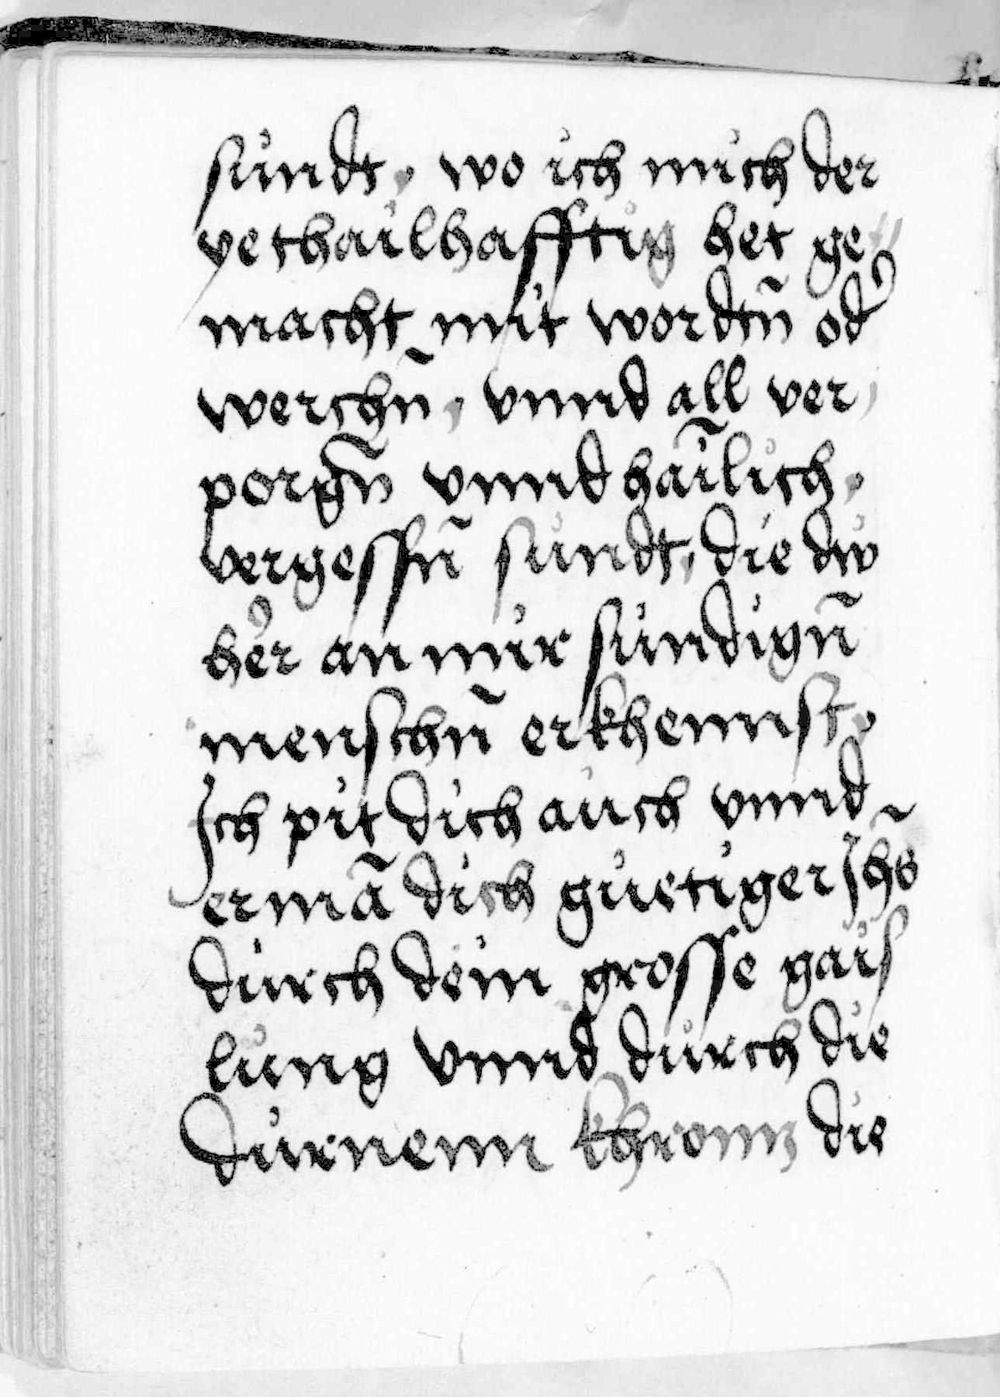 sündt, wo ich mich der
vethailhafftig het ge//
macht mit wordtn̄ od᾽
werchn̄, vnnd all ver
porgn̄ vnnd hāilich,
vergessn̄ sündt, die dw
her an mir sündign̄
menschn̄ erkhennst,
Ich pit dich auch vnnd
ermā dich guetiger Jhs̄
durch dein grosse gais
lung vnnd durch die
durnenn khronn die